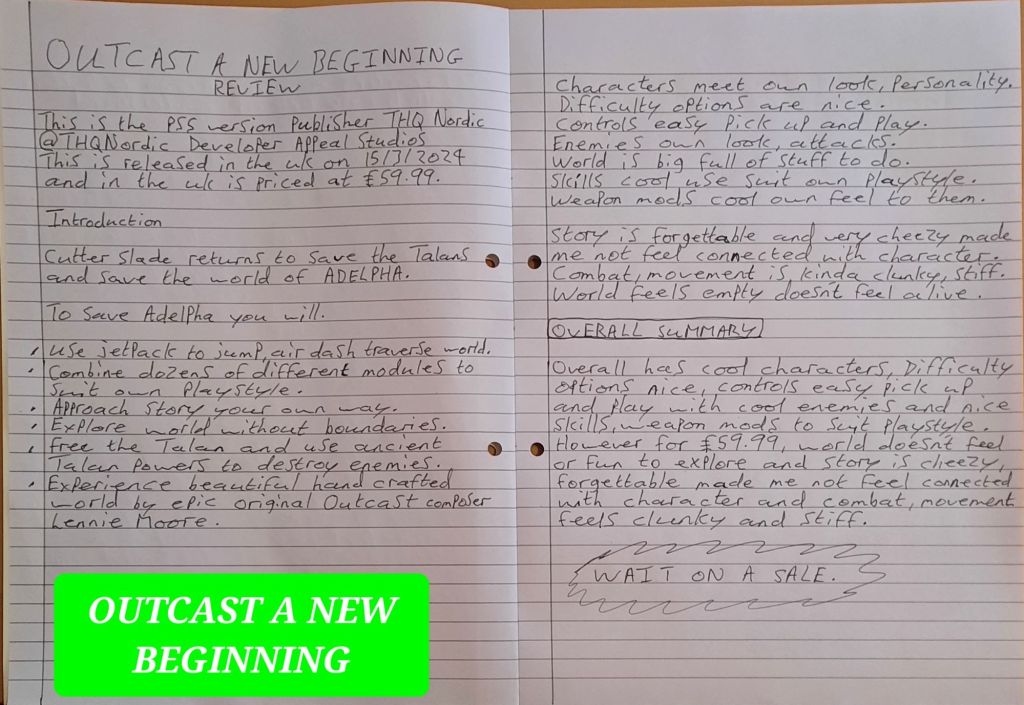 OUTCAST A NEW BEGINNING
REVIEW
This is the PS5 version Publisher THQ Nordic
@THQNordic Developer Appeal Studios
This is released in the uk on 15/3/2024
and in the uk is priced at £59.99.
Introduction
Cutter Slade returns to save the Talans
and save the world of ADELPHA.
To save Adelpha you will.
• use jetpack to jump, air dash traverse world.
• Combine dozens of different modules to
suit own playstyle.
• Approach story your own way.
• Explore world without boundaries.
• free the Talan and use ancient
Talan powers to destroy enemies.
• Experience beautiful hand crafted
world by epic original Outcast composer
Lennie Moore.
OUTCAST A NEW
BEGINNING
Characters meet own look, personality.
Difficulty options are nice.
Controls easy pick up and play.
Enemies own look, attacks.
World is big full of stuff to do.
Skills cool use suit own playstyle.
Weapon mods cool own feel to them.
Story is forgettable and very cheezy made
me not feel connected with character.
Combat, movement is kinda clunky, stiff.
World feels empty doesn't feel alive.
OVERALL SUMMARY
Overall has cool characters, Difficulty
options nice, controls easy pick up
and play with cool enemies and nice
skills, weapon mods to suit playstyle.
However for £59.99, world doesn't feel
or fun to explore and story is cheezy,
forgettable made me not feel connected
with character and combat, movement
feels clunky and stiff.
WAIT ON A SALE.